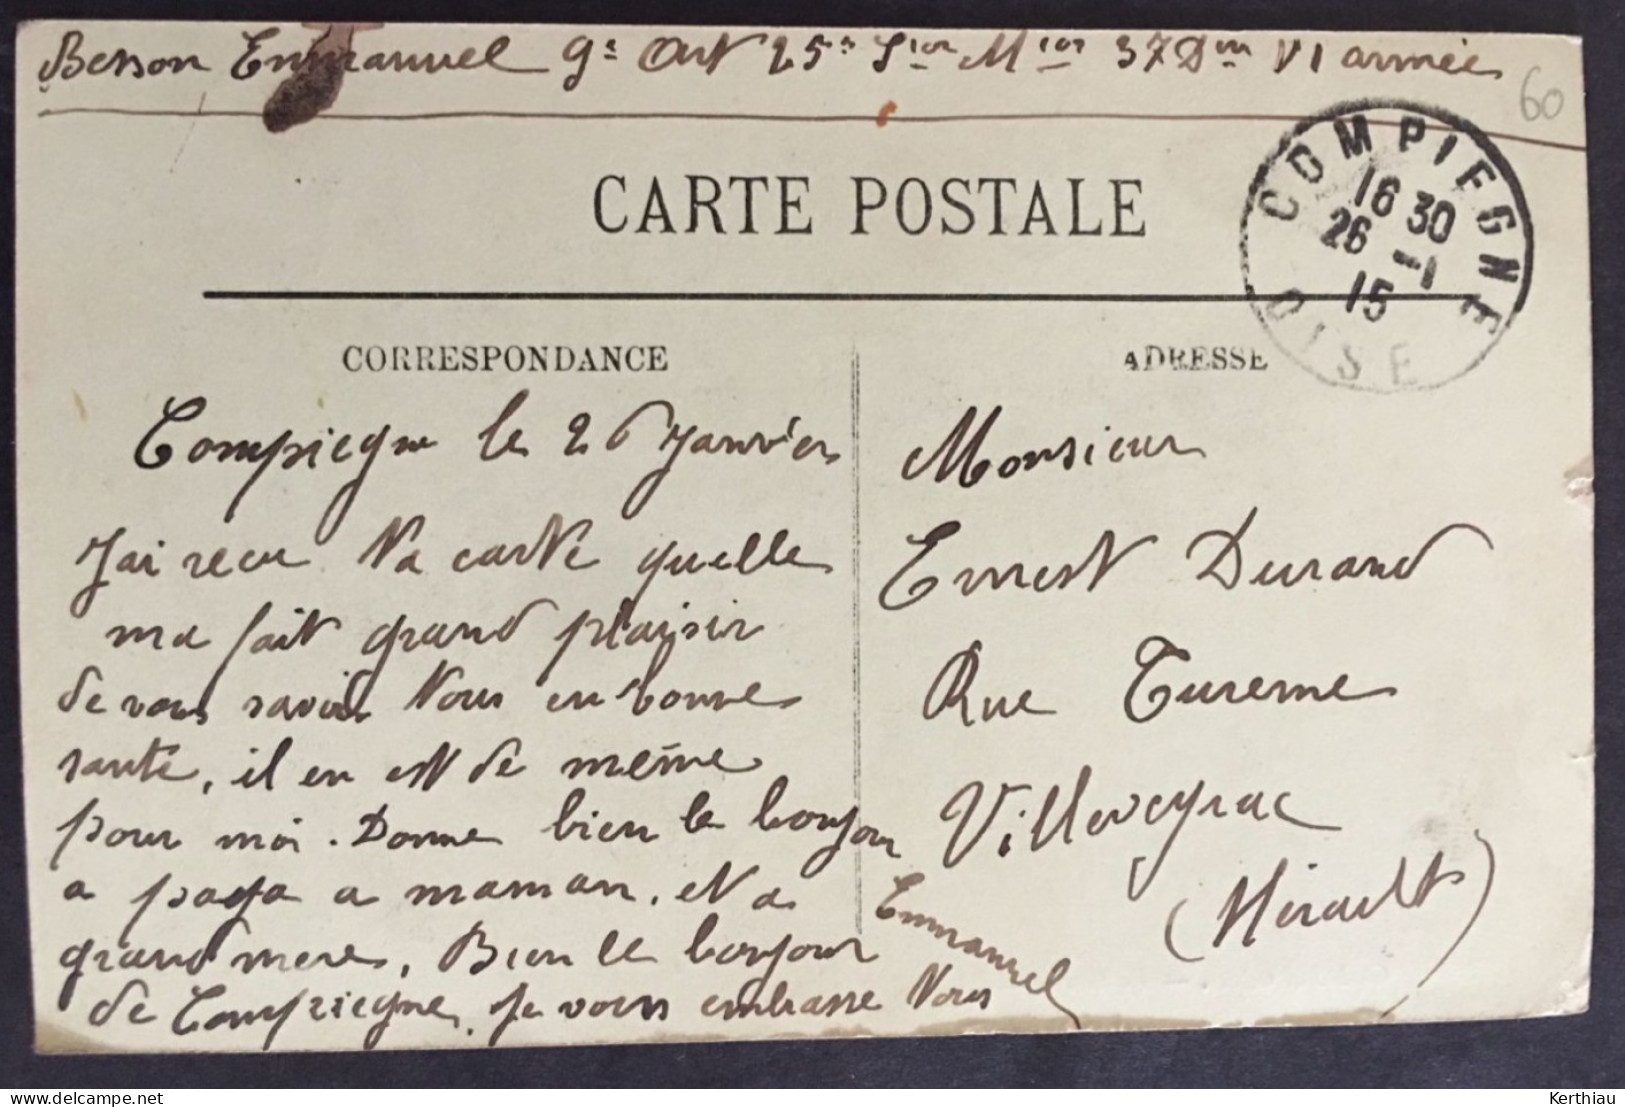 Besson Emmanuel 9e Art 25e Son Mion 37 Don VI armée
60
CARTE POSTALE
COMPIEGNE
16 30
26 -1
15
OISE
CORRESPONDANCE
ADRESSE
Compiegne le 26 Janvier
J'ai recu ta carte quelle
ma fait grand plaisir
de vous savoir tous en bonne
santé, il en est de même
pour moi. Donne bien le bonjour
a papa a maman, et a
grand mere, Bien le bonjour
de Compiegne, je vous embrasse tous
Emmanuel
Monsieur
Ernest Durand
Rue Turenne
Villeveyrac
(Hérault)
Kerthiau